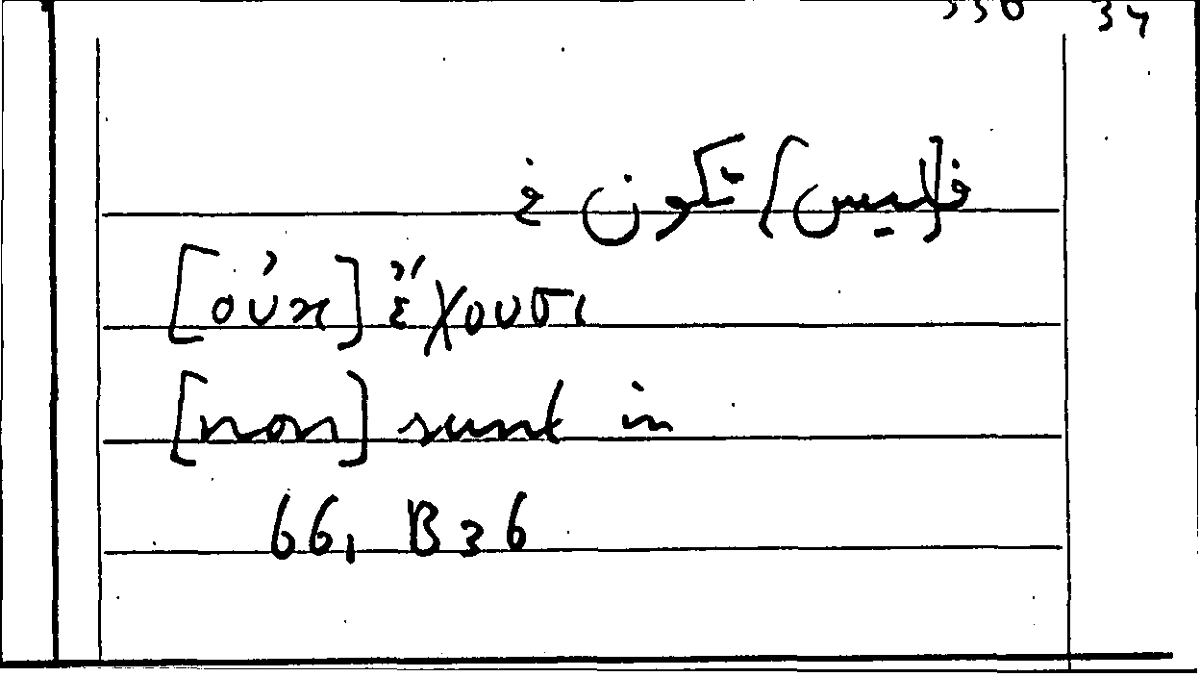 34
ف[ليس] تكون في
[οὐκ] ἔχουσι
[non] sunt in
66, B36